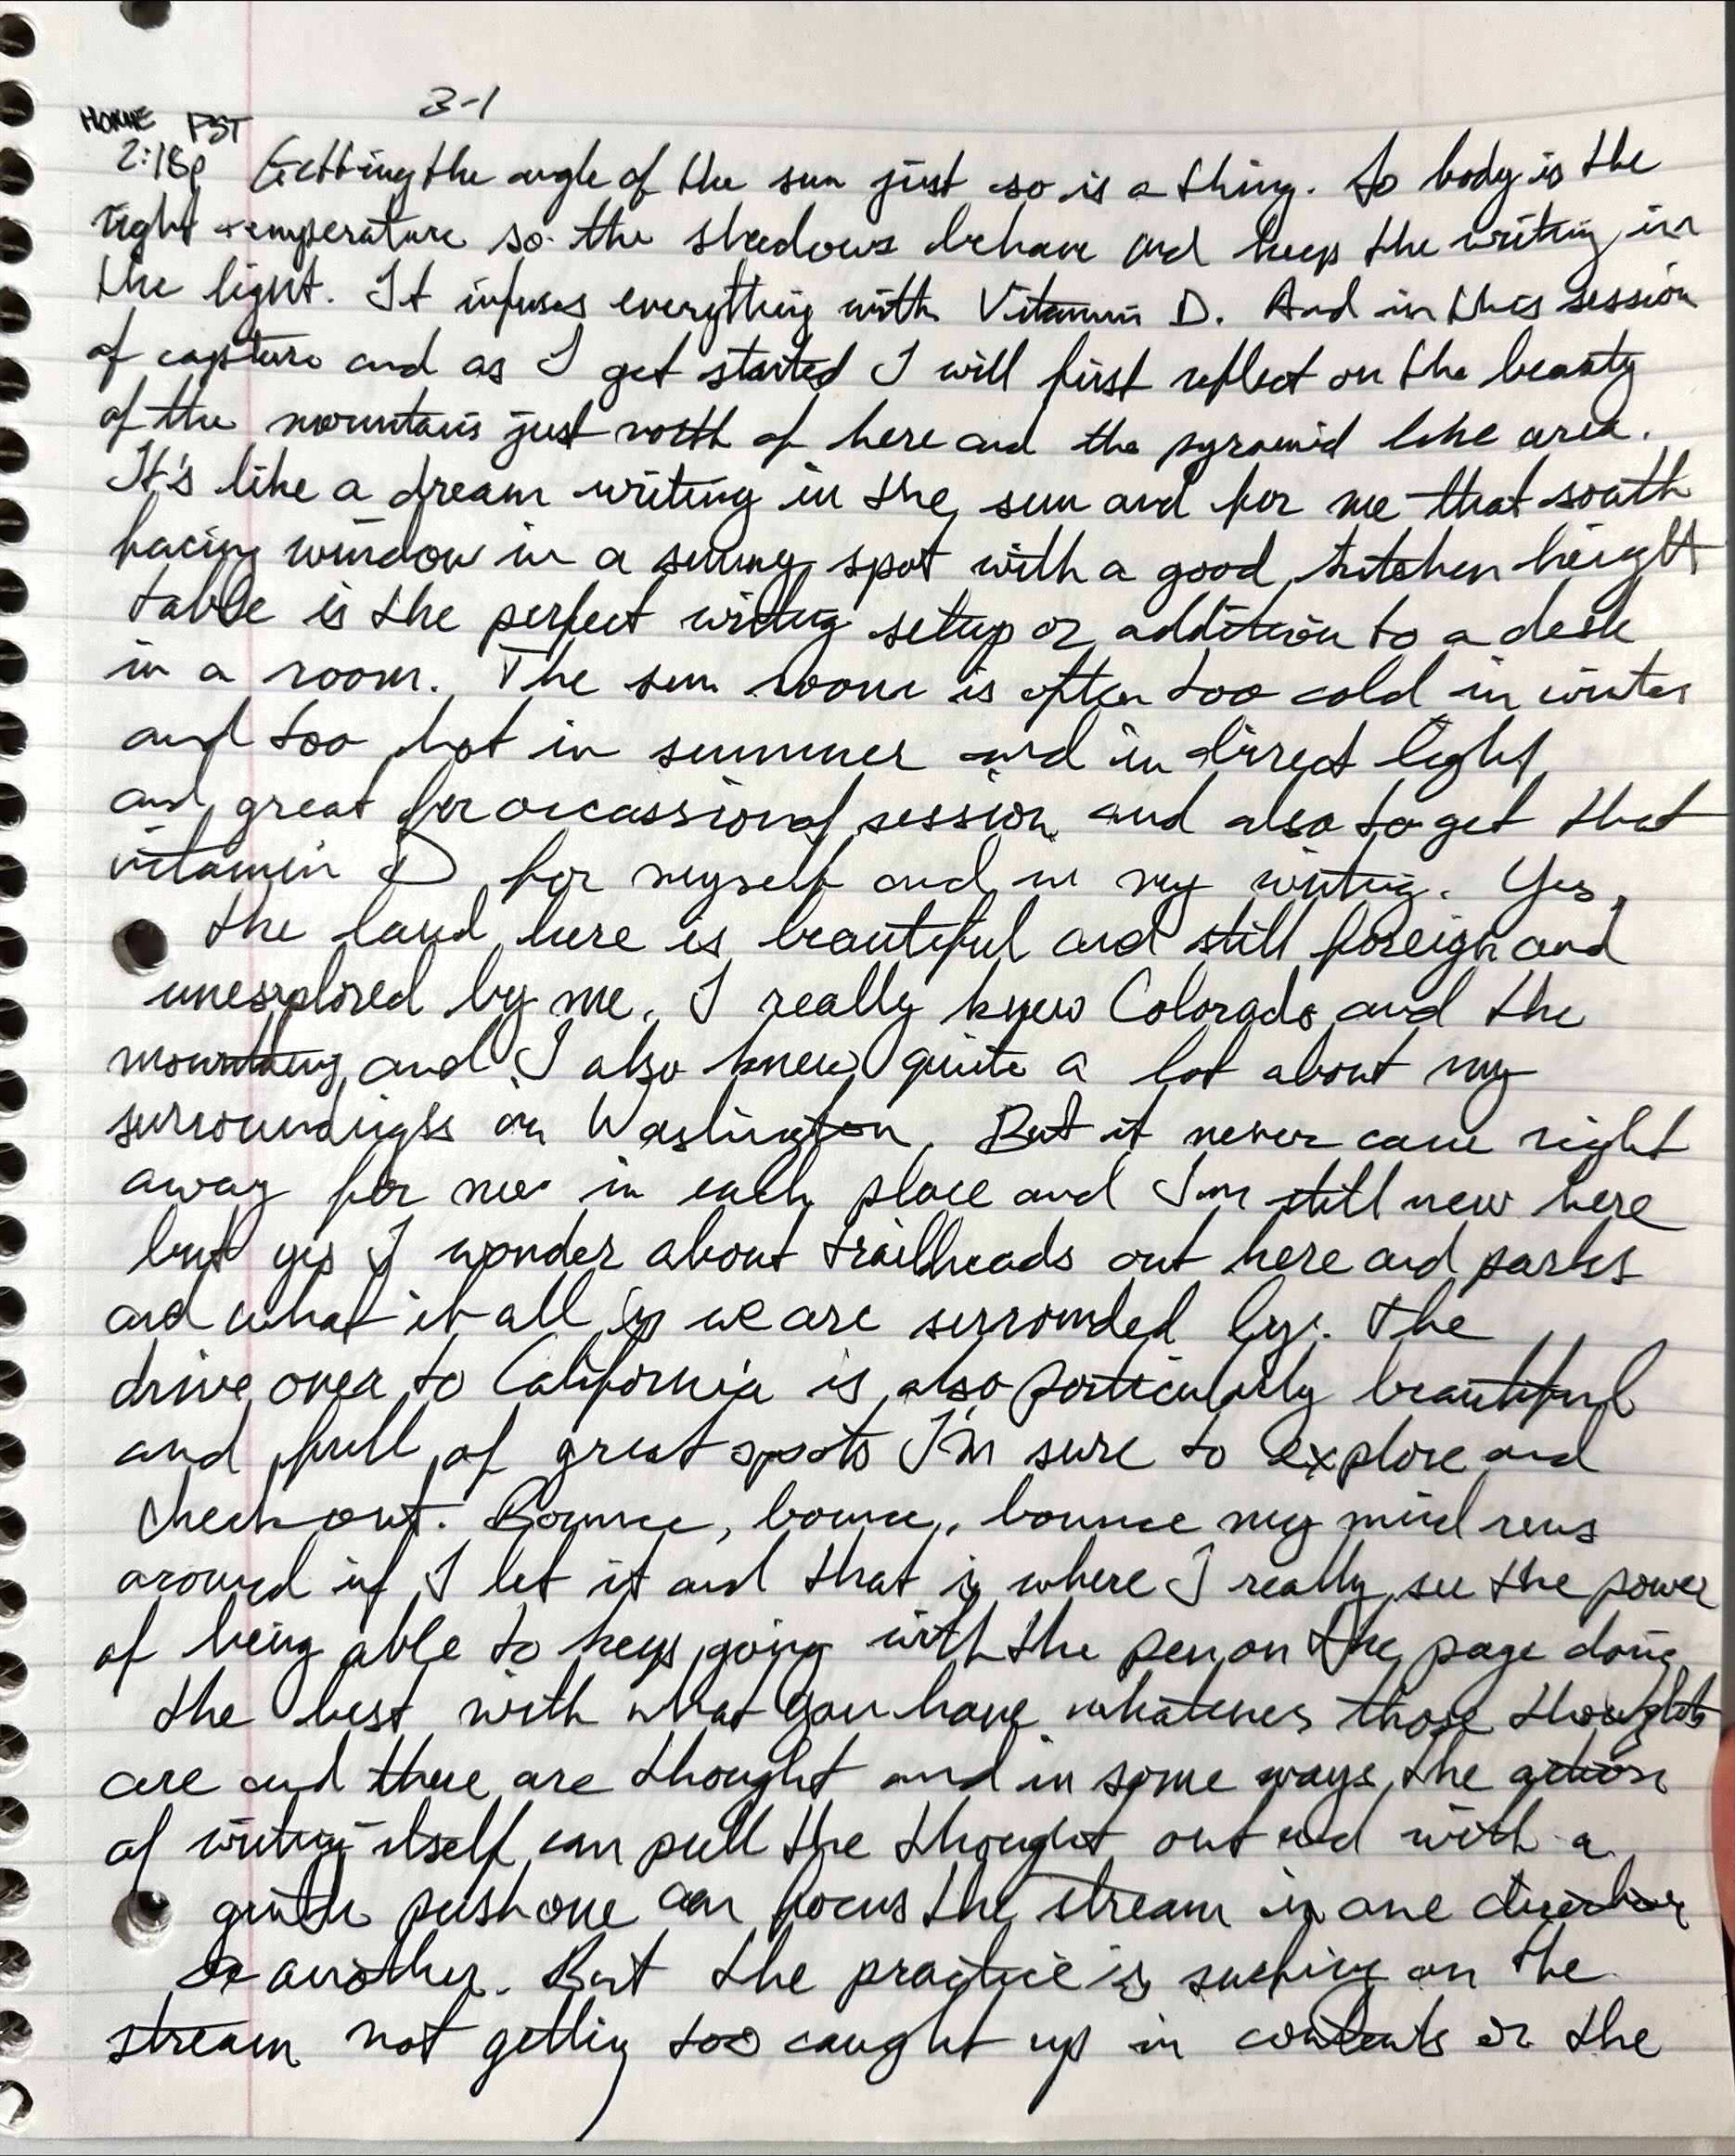 3-1
HOME PST
2:18p Getting the angle of the sun just so is a thing. So body is the
right temperature so the shadows behave and keeps the writing in
the light. It infuses everything with Vitamin D. And in this session
of capture and as I get started I will first reflect on the beauty
of the mountains just north of here and the pyramid like area.
It's like a dream writing in the sun and for me that south
facing window in a sunny spot with a good kitchen height
table is the perfect writing setup or addition to a desk
in a room. The sun room is often too cold in winter
and too hot in summer and in dirrect light
and great for orcassional session and also to get that
vitamin D for myself and in my writing. Yes,
the land here is beautiful and still foreign and
unexplored by me. I really knew Colorado and the
mountains and I also knew quite a lot about my
surroundingss in Washington. But it never came right
away for me in each place and I'm still new here
but yes I wonder about trailheads out here and parks
and what it all is we are surronded by. The
drive over to California is also particularly beautiful
and full of great spots I'm sure to explore and
check out. Bounce, bounce, bounce my mind runs
around if I let it and that is where I really see the power
of being able to keep going with the pen on the page doing
the best with what you have whatever those thoughts
are and there are thought and in some ways the action
of writing itself can pull the thought out and with a
push one can focus the stream in one direction
or another. But the practice is surfing on the
stream not getting too caught up in contents or the